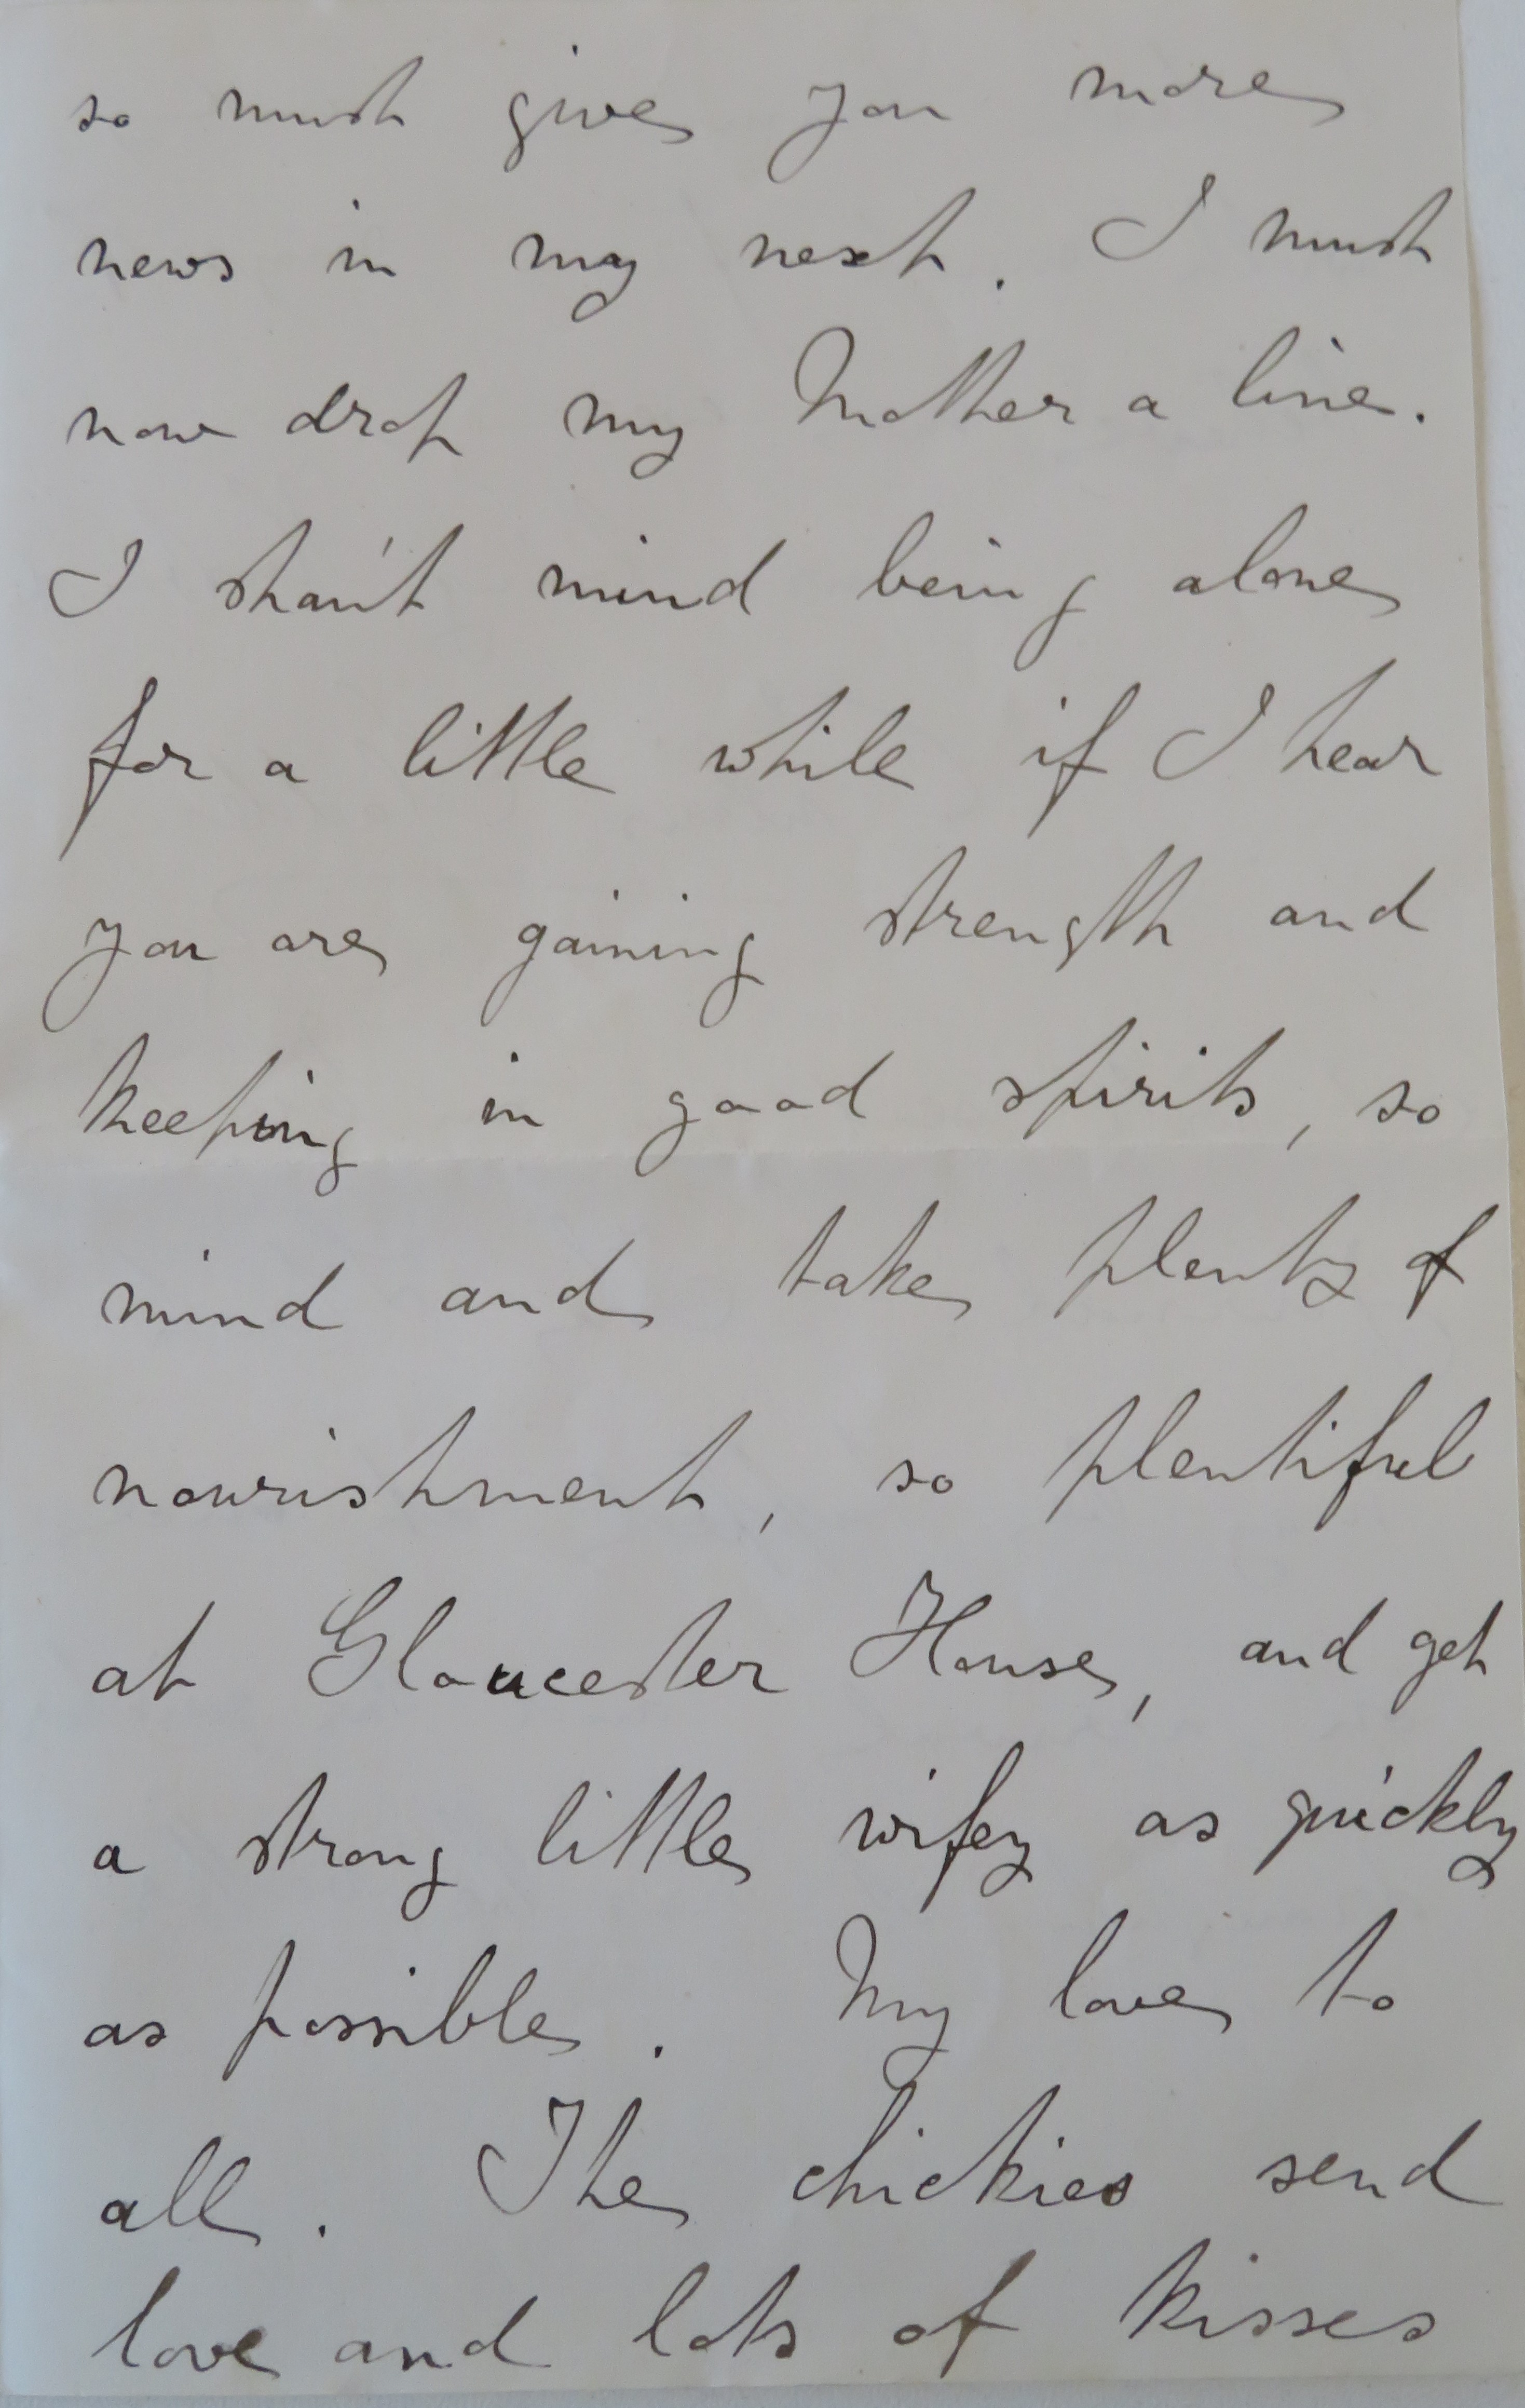 so must give you more
news in my next. I must
now drop my Mother a line.
I shan't mind being alone
for a little while if I hear
you are gaining strength and
keeping in good spirits, so
mind and take plenty of
nourishment, so plentiful
at Gloucester House, and get
a strong little wifey as quickly
as possible. My love to
all. The chickies send
love and lots of kisses